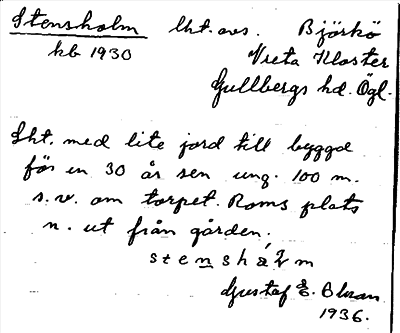 Stensholm lht. avs. Björkö
kb 1930 Vreta Kloster
Gullbergs hd. Ögl.
Lht. med lite jord till byggd
för en 30 år sen ung. 100 m.
s.v. om torpet. Roms plats
n. ut från gården.
stenshålm
Gustaf E.
1936.